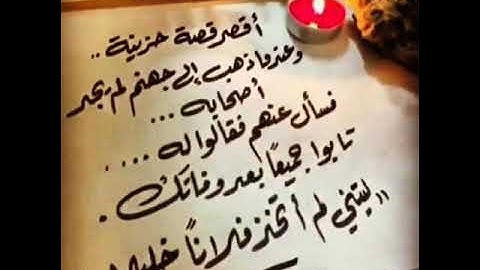 أقصر قصة حزينة ..
وعندما ذهب إلى جهنم لم يجد
أصحابه ...
فسأل عنهم فقالوا له ....
تابوا جميعاً بعد وفاتك .
"ليتني لم أتخذ فلاناً خليلا